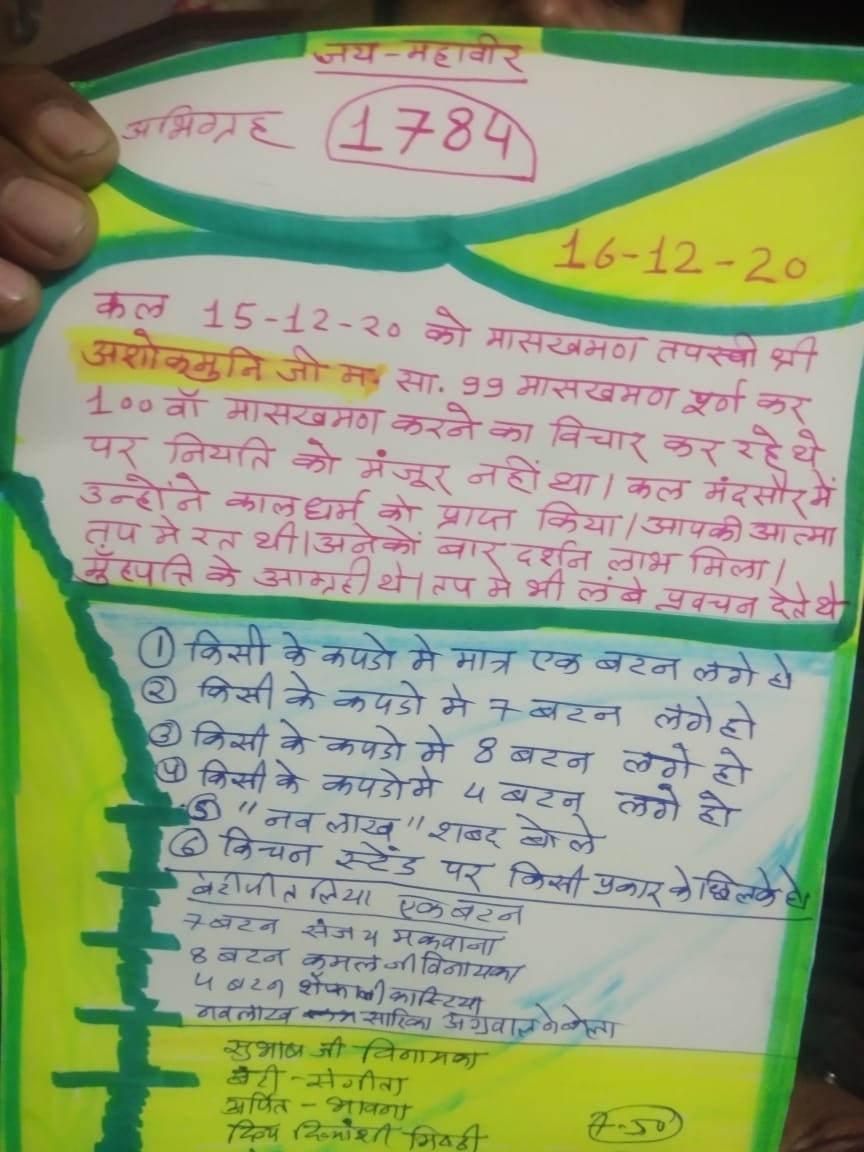 जय-महावीर
अभिग्रह 1784
16-12-20
कल 15-12-20 को मासखमण तपस्वी श्री
अशोकमुनि जी म. सा. 99 मासखमण पूर्ण कर
100 वाँ मासखमण करने का विचार कर रहे थे
पर नियति को मंजूर नहीं था। कल मंदसौर में
उन्होंने कालधर्म को प्राप्त किया। आपकी आत्मा
तप मे रत थी। अनेकों बार दर्शन लाभ मिला।
मुँहपत्ति के आग्रही थे। तप मे भी लंबे प्रवचन देते थे
① किसी के कपडो मे मात्र एक बटन लगे हो
② किसी के कपडो मे 7 बटन लगे हो
③ किसी के कपडो मे 8 बटन लगे हो
④ किसी के कपडो मे 4 बटन लगे हो
⑤ "नव लाख" शब्द बोले
⑥ किचन स्टेंड पर किसी प्रकार के छिलके हो
एक बटन
7 बटन संजय मकवाना
8 बटन कमल जी विनायका
4 बटन
नवलाख सारिका अग्रवाल ने बोला
सुभाष जी विनायका
बेटी - संगीता
अर्पित - भावना
7-50